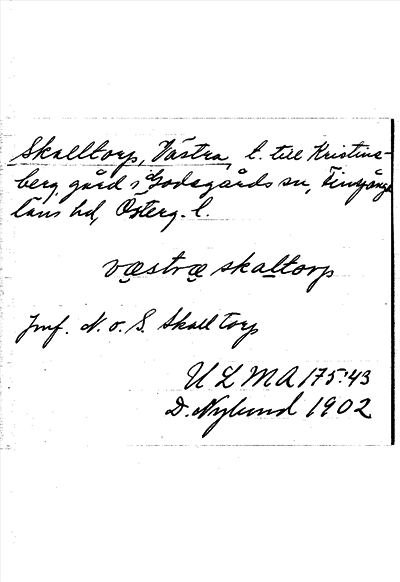 Skalltorp, Västra, t. till Kristins-
berg, gård i Godegårds sn, Finspånga
läns hd, Österg. l.
væstræ skaltorp
Jmf. N. o. S. Skalltorp
ULMA 175:43
D. Nylund 1902